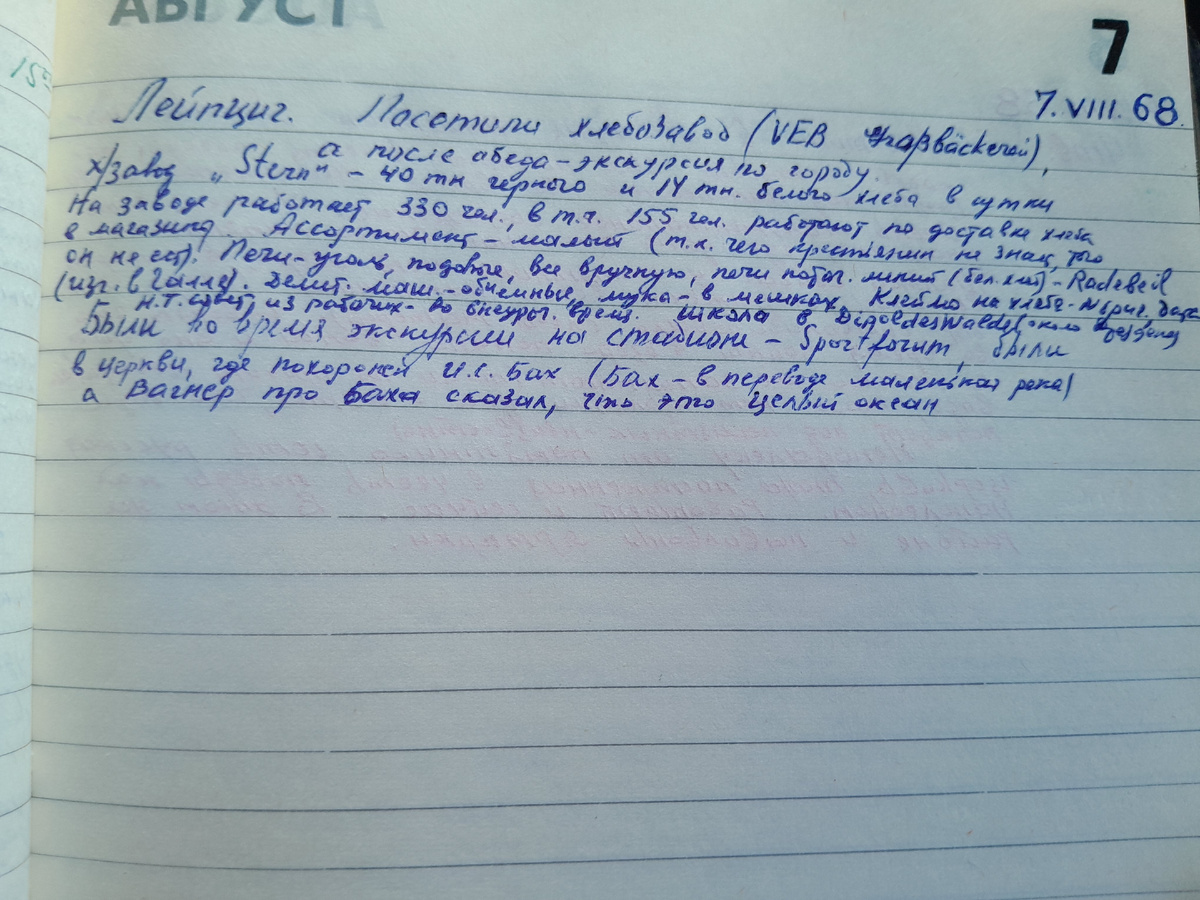 АВГУСТ
7
15
7.VIII.68.
Лейпциг. Посетили хлебозавод (VEB Großbäckerei),
а после обеда – экскурсия по городу.
х/завод „Stern" – 40 тн черного и 14 тн. белого хлеба в сутки
На заводе работает 330 чел., в т.ч. 155 чел. работают по доставке хлеба
в магазины. Ассортимент – малый (т.к. чего крестьянин не знает, того
он не ест). Печи – уголь, подовые, все вручную, печи поточ. линий (бел. хлеб) – Radebeil
(изг. в Галле). Делит. маш. – объемные, мука – в мешках. Клеймо на хлебе – № бриг. дата
Н.Т. совет из рабочих – во внеуроч. время. Школа в Dipoldeswalde (около Дрездена)
Были во время экскурсии на стадионе – Sportforum, были
в церкви, где похоронен И.С. Бах (Бах – в переводе маленькая река)
а Вагнер про Баха сказал, что это целый океан